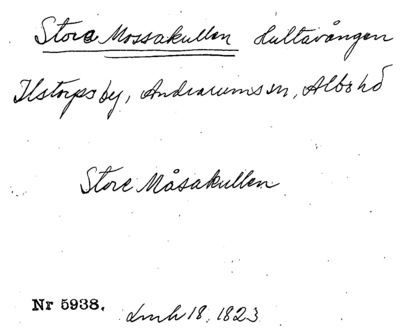 Stora Mossakullen Lultavången
Ilstorps by, Andrarums sn, Albo hd
Store Måsakullen
Nr 5938. Lmh 18. 1823